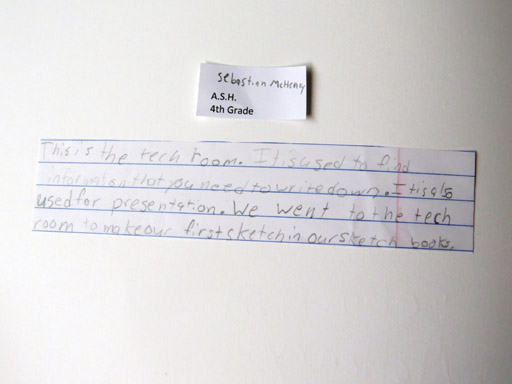 Sebastian McHeney
A.S.H.
4th Grade
This is the tech room. It is used to find
information that you need to write down. It is also
used for presentation. We went to the tech
room to make our first sketch in our sketch books.